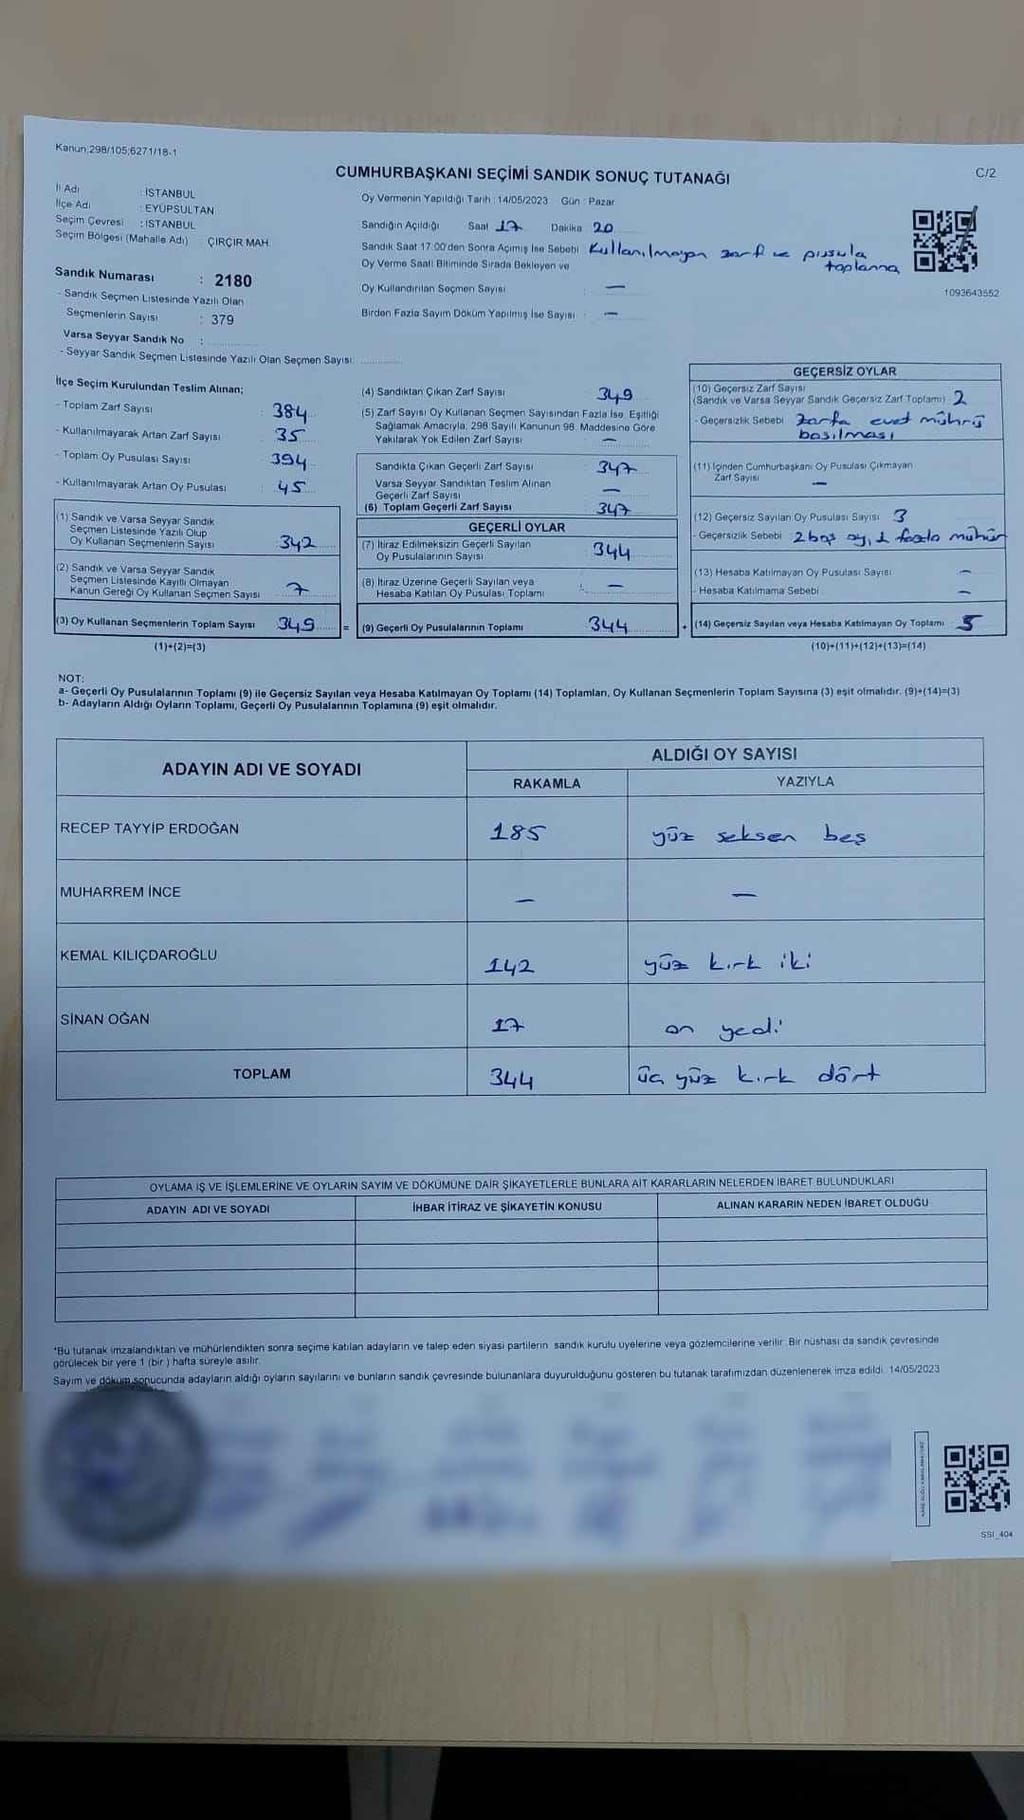 Kanun;298/105;6271/18-1
CUMHURBAŞKANI SEÇİMİ SANDIK SONUÇ TUTANAĞI
C/2
İl Adı : İSTANBUL
İlçe Adı : EYÜPSULTAN
Seçim Çevresi : İSTANBUL
Seçim Bölgesi (Mahalle Adı) ÇIRÇIR MAH.
Oy Vermenin Yapıldığı Tarih : 14/05/2023 Gün : Pazar
Sandığın Açıldığı Saat 17 Dakika 20
Sandık Saat 17:00'den Sonra Açılmış İse Sebebi Kullanılmayan zarf ve pusula toplanma
Oy Verme Saati Bitiminde Sırada Bekleyen ve
Oy Kullandırılan Seçmen Sayısı : —
Birden Fazla Sayım Döküm Yapılmış İse Sayısı : —
1093643552
Sandık Numarası : 2180
- Sandık Seçmen Listesinde Yazılı Olan
Seçmenlerin Sayısı : 379
Varsa Seyyar Sandık No :
- Seyyar Sandık Seçmen Listesinde Yazılı Olan Seçmen Sayısı:
İlçe Seçim Kurulundan Teslim Alınan;
- Toplam Zarf Sayısı : 384
- Kullanılmayarak Artan Zarf Sayısı : 35
- Toplam Oy Pusulası Sayısı : 394
- Kullanılmayarak Artan Oy Pusulası : 45
(1) Sandık ve Varsa Seyyar Sandık
Seçmen Listesinde Yazılı Olup
Oy Kullanan Seçmenlerin Sayısı : 342
(2) Sandık ve Varsa Seyyar Sandık
Seçmen Listesinde Kayıtlı Olmayan
Kanun Gereği Oy Kullanan Seçmen Sayısı : 7
(3) Oy Kullanan Seçmenlerin Toplam Sayısı : 349
(1)+(2)=(3)
(4) Sandıktan Çıkan Zarf Sayısı 349
(5) Zarf Sayısı Oy Kullanan Seçmen Sayısından Fazla İse, Eşitliği
Sağlamak Amacıyla, 298 Sayılı Kanunun 98. Maddesine Göre
Yakılarak Yok Edilen Zarf Sayısı : —
Sandıkta Çıkan Geçerli Zarf Sayısı 347
Varsa Seyyar Sandıktan Teslim Alınan
Geçerli Zarf Sayısı —
(6) Toplam Geçerli Zarf Sayısı 347
GEÇERLİ OYLAR
(7) İtiraz Edilmeksizin Geçerli Sayılan
Oy Pusulalarının Sayısı 344
(8) İtiraz Üzerine Geçerli Sayılan veya
Hesaba Katılan Oy Pusulası Toplamı : —
= (9) Geçerli Oy Pusulalarının Toplamı 344
GEÇERSİZ OYLAR
(10) Geçersiz Zarf Sayısı
(Sandık ve Varsa Seyyar Sandık Geçersiz Zarf Toplamı) 2
- Geçersizlik Sebebi zarfa evet mührü
basılması
(11) İçinden Cumhurbaşkanı Oy Pusulası Çıkmayan
Zarf Sayısı —
(12) Geçersiz Sayılan Oy Pusulası Sayısı 3
- Geçersizlik Sebebi 2 boş oy, 1 fazla mühür
(13) Hesaba Katılmayan Oy Pusulası Sayısı —
- Hesaba Katılmama Sebebi —
+ (14) Geçersiz Sayılan veya Hesaba Katılmayan Oy Toplamı 5
(10)+(11)+(12)+(13)=(14)
NOT:
a- Geçerli Oy Pusulalarının Toplamı (9) ile Geçersiz Sayılan veya Hesaba Katılmayan Oy Toplamı (14) Toplamları, Oy Kullanan Seçmenlerin Toplam Sayısına (3) eşit olmalıdır. (9)+(14)=(3)
b- Adayların Aldığı Oyların Toplamı, Geçerli Oy Pusulalarının Toplamına (9) eşit olmalıdır.
ADAYIN ADI VE SOYADI
ALDIĞI OY SAYISI
RAKAMLA YAZIYLA
RECEP TAYYİP ERDOĞAN 185 yüz seksen beş
MUHARREM İNCE — —
KEMAL KILIÇDAROĞLU 142 yüz kırk iki
SİNAN OĞAN 17 on yedi
TOPLAM 344 üç yüz kırk dört
OYLAMA İŞ VE İŞLEMLERİNE VE OYLARIN SAYIM VE DÖKÜMÜNE DAİR ŞİKAYETLERLE BUNLARA AİT KARARLARIN NELERDEN İBARET BULUNDUKLARI
ADAYIN ADI VE SOYADI İHBAR İTİRAZ VE ŞİKAYETİN KONUSU ALINAN KARARIN NEDEN İBARET OLDUĞU
*Bu tutanak imzalandıktan ve mühürlendikten sonra seçime katılan adayların ve talep eden siyasi partilerin sandık kurulu üyelerine veya gözlemcilerine verilir. Bir nüshası da sandık çevresinde
görülecek bir yere 1 (bir ) hafta süreyle asılır.
Sayım ve döküm sonucunda adayların aldığı oyların sayılarını ve bunların sandık çevresinde bulunanlara duyurulduğunu gösteren bu tutanak tarafımızdan düzenlenerek imza edildi. 14/05/2023
SSI_404